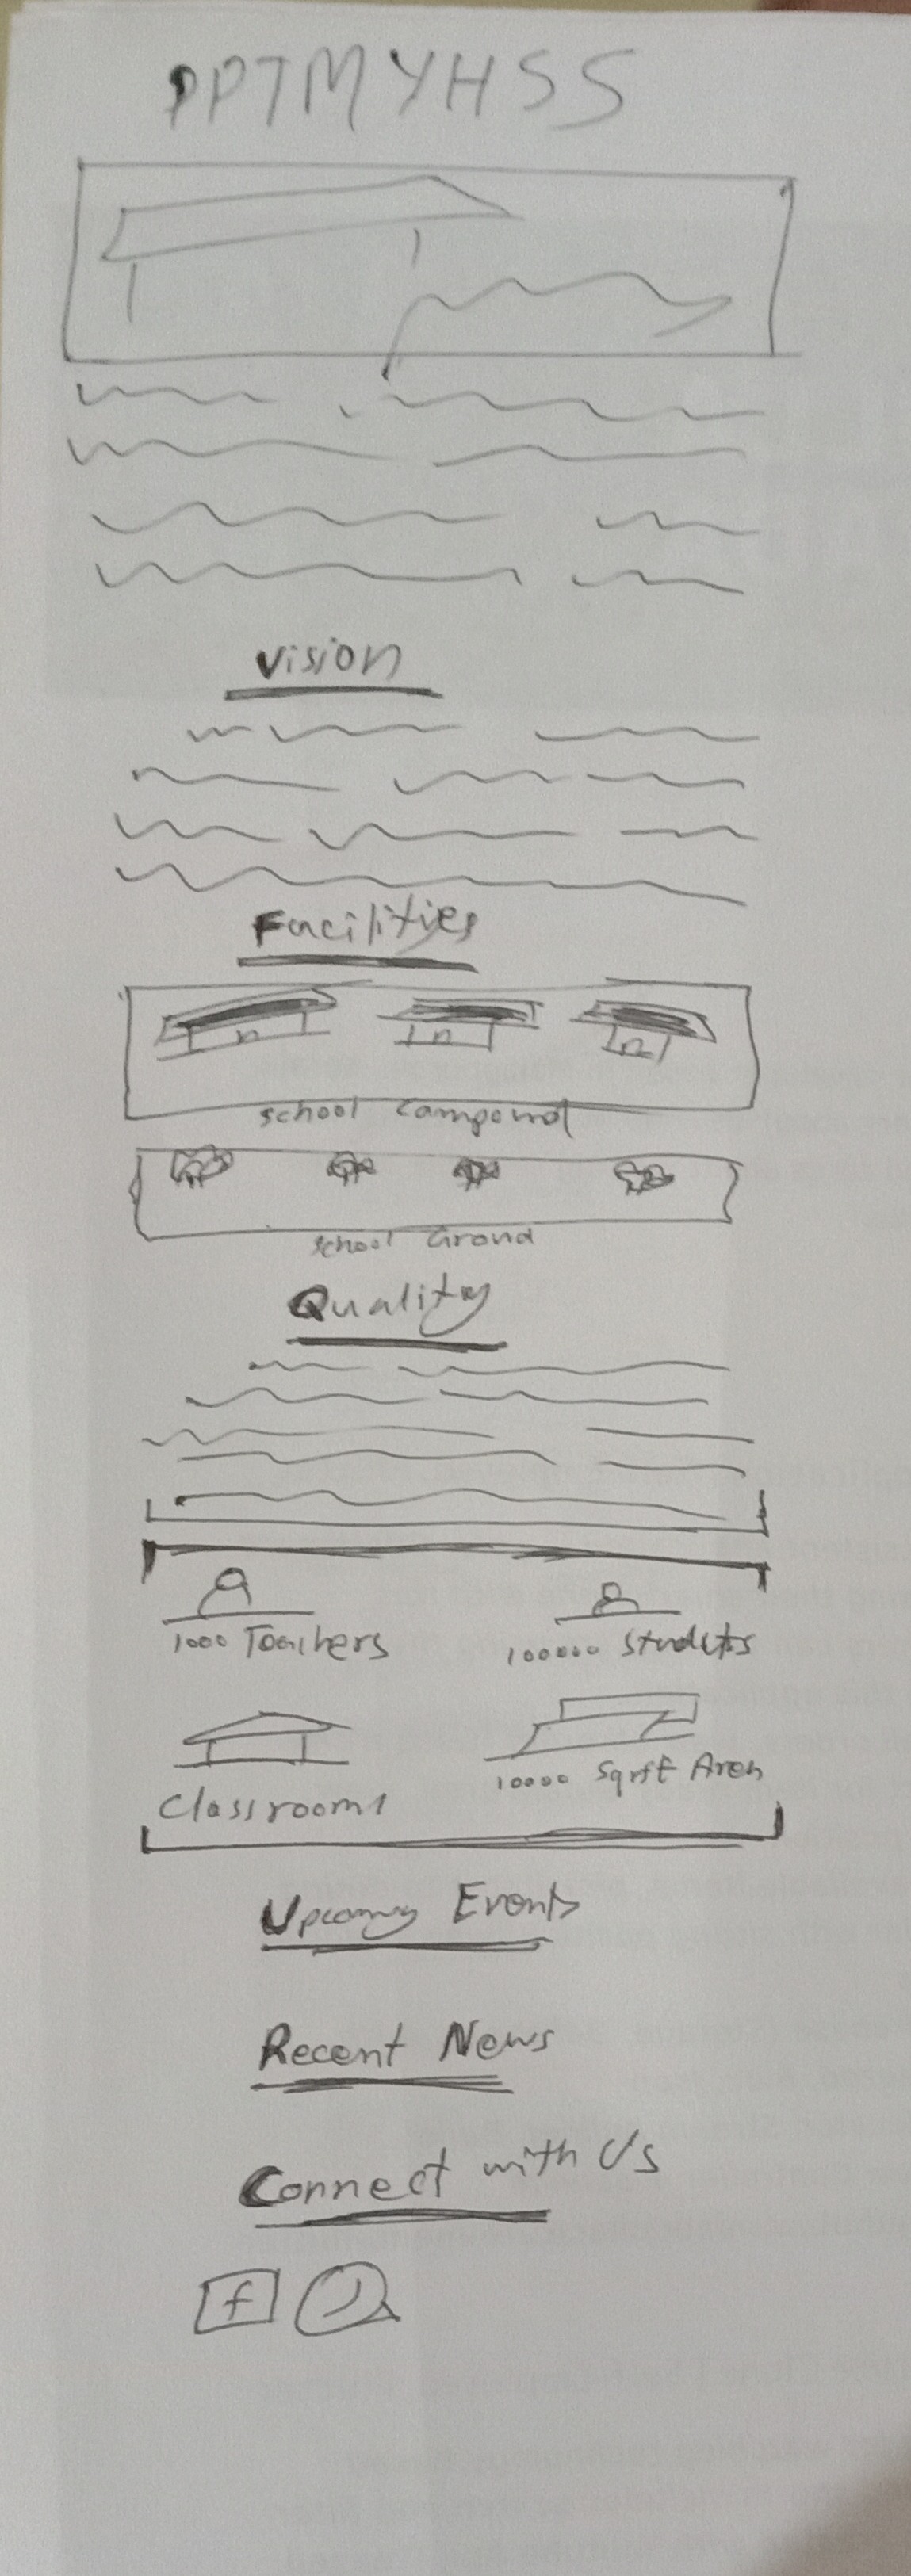 PPTMYHSS
Vision
Facilities
School Compound
School Ground
Quality
1000 Teachers
100000 Students
Classrooms
10000 Sqrft Area
Upcoming Events
Recent News
Connect with Us
f